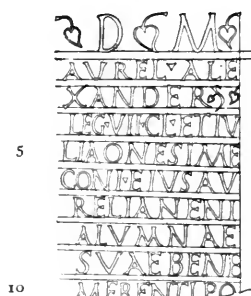 D M
AVREL ALE
XANDERS
LEGVICLETIV
5 LIAONESIME
CONI EIVSAV
RELIANENI
ALVMNAE
SVAEBENE
10 MERENTIPO